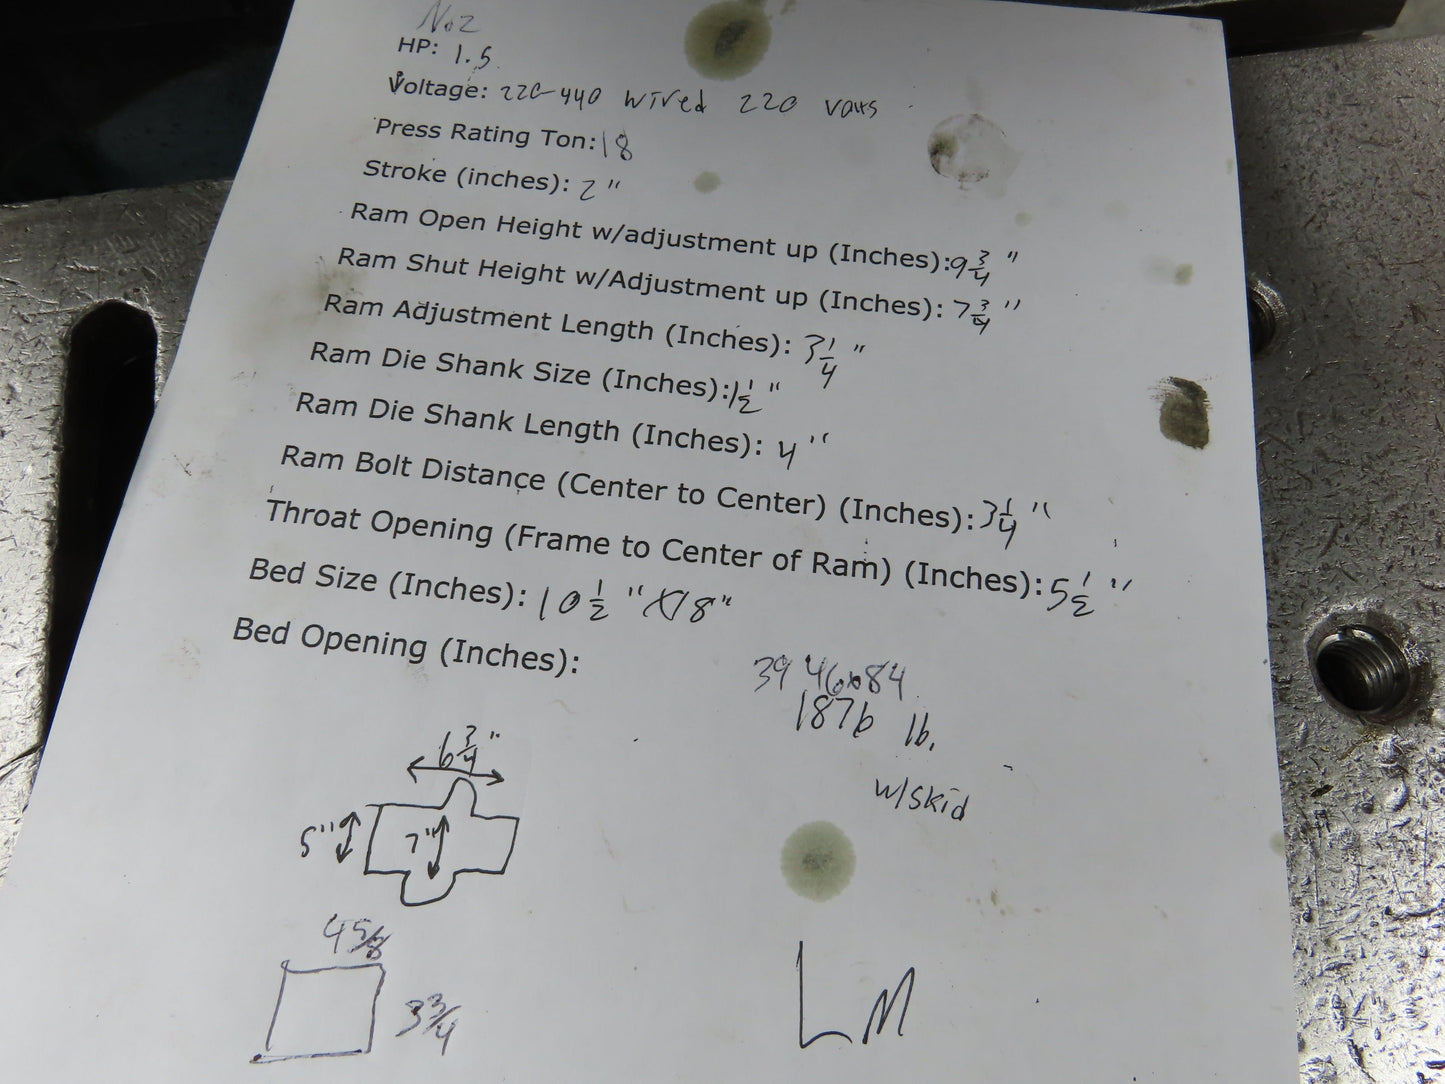 No2
HP: 1.5
Voltage: 220-440 wired 220 volts
Press Rating Ton: 18
Stroke (inches): 2"
Ram Open Height w/adjustment up (Inches): 9 3/4"
Ram Shut Height w/Adjustment up (Inches): 7 3/4"
Ram Adjustment Length (Inches): 3 1/4"
Ram Die Shank Size (Inches): 1 1/2"
Ram Die Shank Length (Inches): 4"
Ram Bolt Distance (Center to Center) (Inches): 3 1/4"
Throat Opening (Frame to Center of Ram) (Inches): 5 1/2"
Bed Size (Inches): 10 1/2" X 18"
Bed Opening (Inches):
39 46x84
1876 lb.
w/skid
6 3/4"
5"
7"
4 5/8
3 3/4
LM